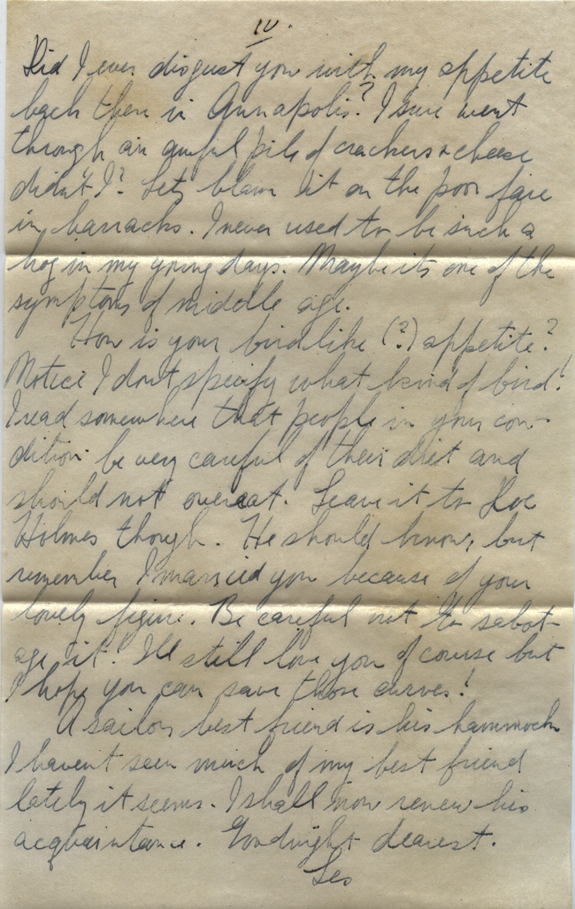 IV.
Did I ever disgust you with my appetite
back there in Annapolis? I sure went
through an awful pile of crackers & cheese
didn't I? Lets blame it on the poor fare
in barracks. I never used to be such a
hog in my young days. Maybe its one of the
symptoms of middle age.
How is your birdlike (?) appetite?
Notice I dont specify what kind of bird!
I read somewhere that people in your con-
dition be very careful of their diet and
should not overeat. Leave it to Doc
Holmes though. He should know, but
remember I married you because of your
lovely figure. Be careful not to sabot-
age it! I'll still love you of course but
I hope you can save those curves!
A sailors best friend is his hammock
I havent seen much of my best friend
lately it seems. I shall now renew his
acquaintance. Goodnight dearest.
Les